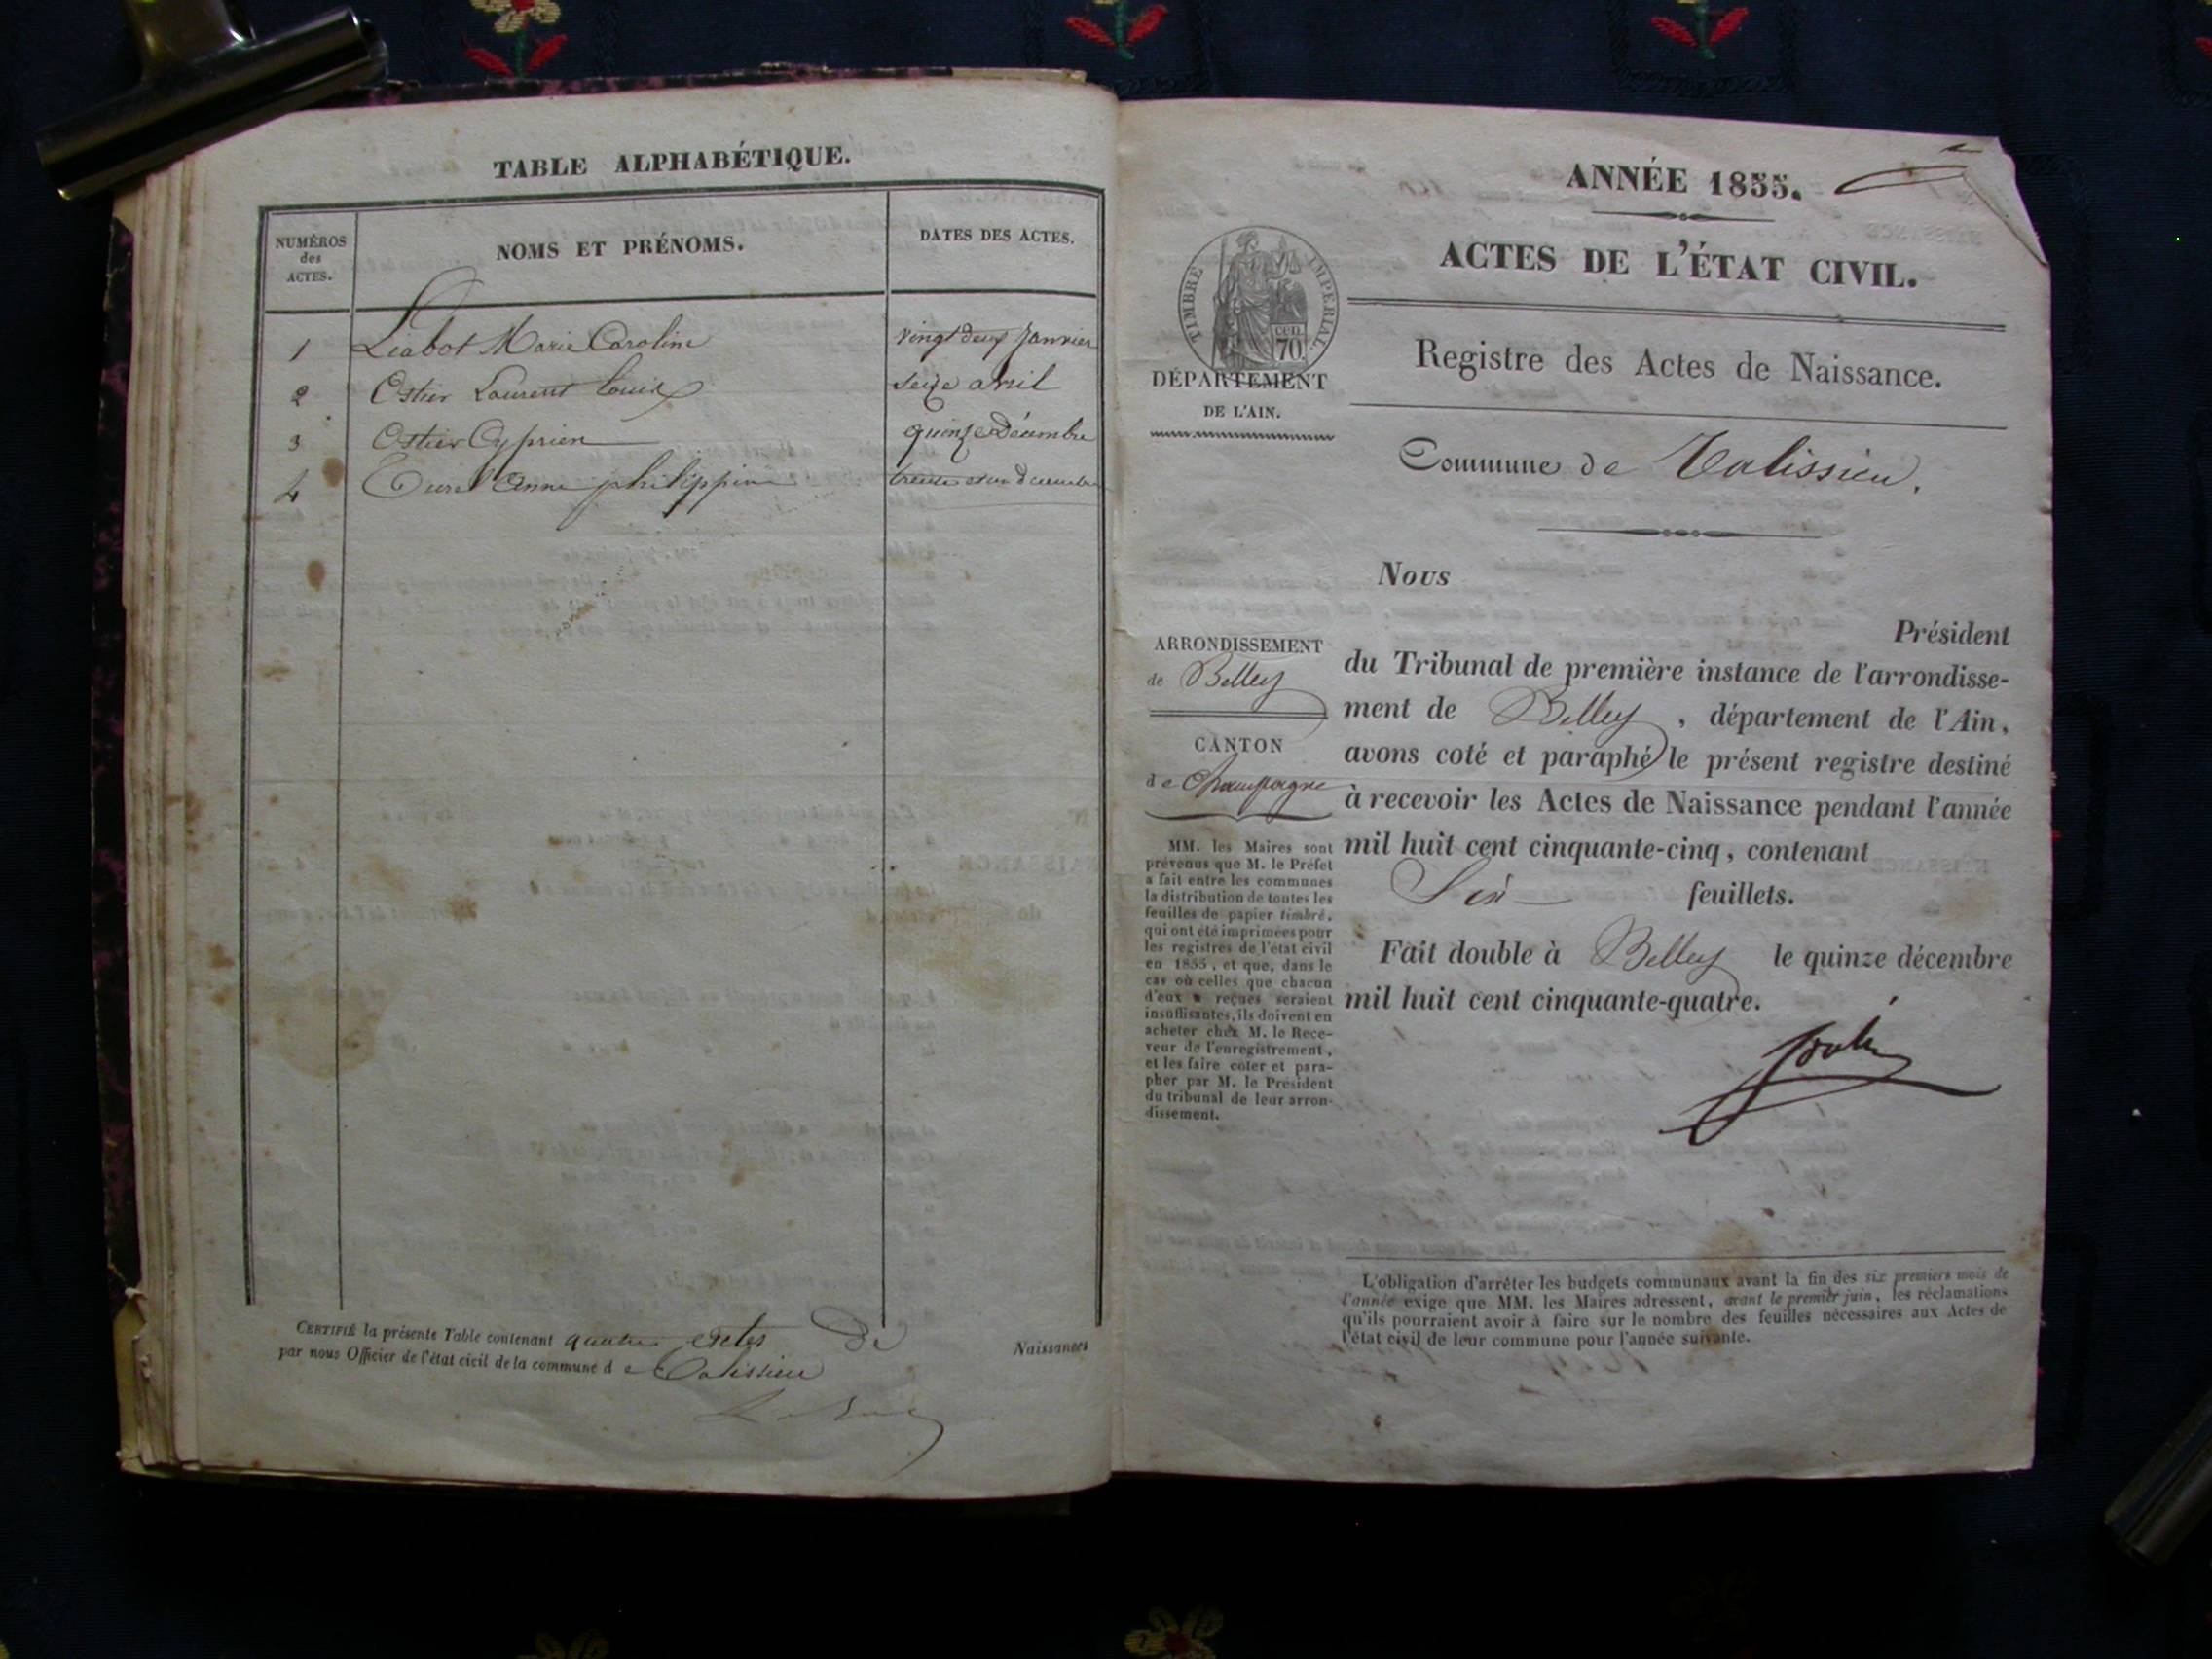 TABLE ALPHABÉTIQUE.
NUMÉROS
des
ACTES.
NOMS ET PRÉNOMS.
DATES DES ACTES.
1 Liabot Marie Caroline vingt deux Janvier
2 Ostier Laurent Louis seize avril
3 Ostier Cyprien quinze Décembre
4 Anne philippine trente et un décembre
CERTIFIÉ la présente Table contenant quatre actes de Naissances
par nous Officier de l'état civil de la commune de Talissieu
ANNÉE 1855.
ACTES DE L'ÉTAT CIVIL.
TIMBRE IMPÉRIAL
cen.
70.
DÉPARTEMENT
DE L'AIN.
Registre des Actes de Naissance.
Commune de Talissieu.
ARRONDISSEMENT
de Belley
CANTON
de Champagne
MM. les Maires sont
prévenus que M. le Préfet
a fait entre les communes
la distribution de toutes les
feuilles de papier timbré,
qui ont été imprimées pour
les registres de l'état civil
en 1855, et que, dans le
cas où celles que chacun
d'eux a reçues seraient
insuffisantes, ils doivent en
acheter chez M. le Rece-
veur de l'enregistrement,
et les faire coter et para-
pher par M. le Président
du tribunal de leur arron-
dissement.
Nous
Président
du Tribunal de première instance de l'arrondisse-
ment de Belley, département de l'Ain,
avons coté et paraphé le présent registre destiné
à recevoir les Actes de Naissance pendant l'année
mil huit cent cinquante-cinq, contenant
Six feuillets.
Fait double à Belley le quinze décembre
mil huit cent cinquante-quatre.
L'obligation d'arrêter les budgets communaux avant la fin des six premiers mois de
l'année exige que MM. les Maires adressent, avant le premier juin, les réclamations
qu'ils pourraient avoir à faire sur le nombre des feuilles nécessaires aux Actes de
l'état civil de leur commune pour l'année suivante.